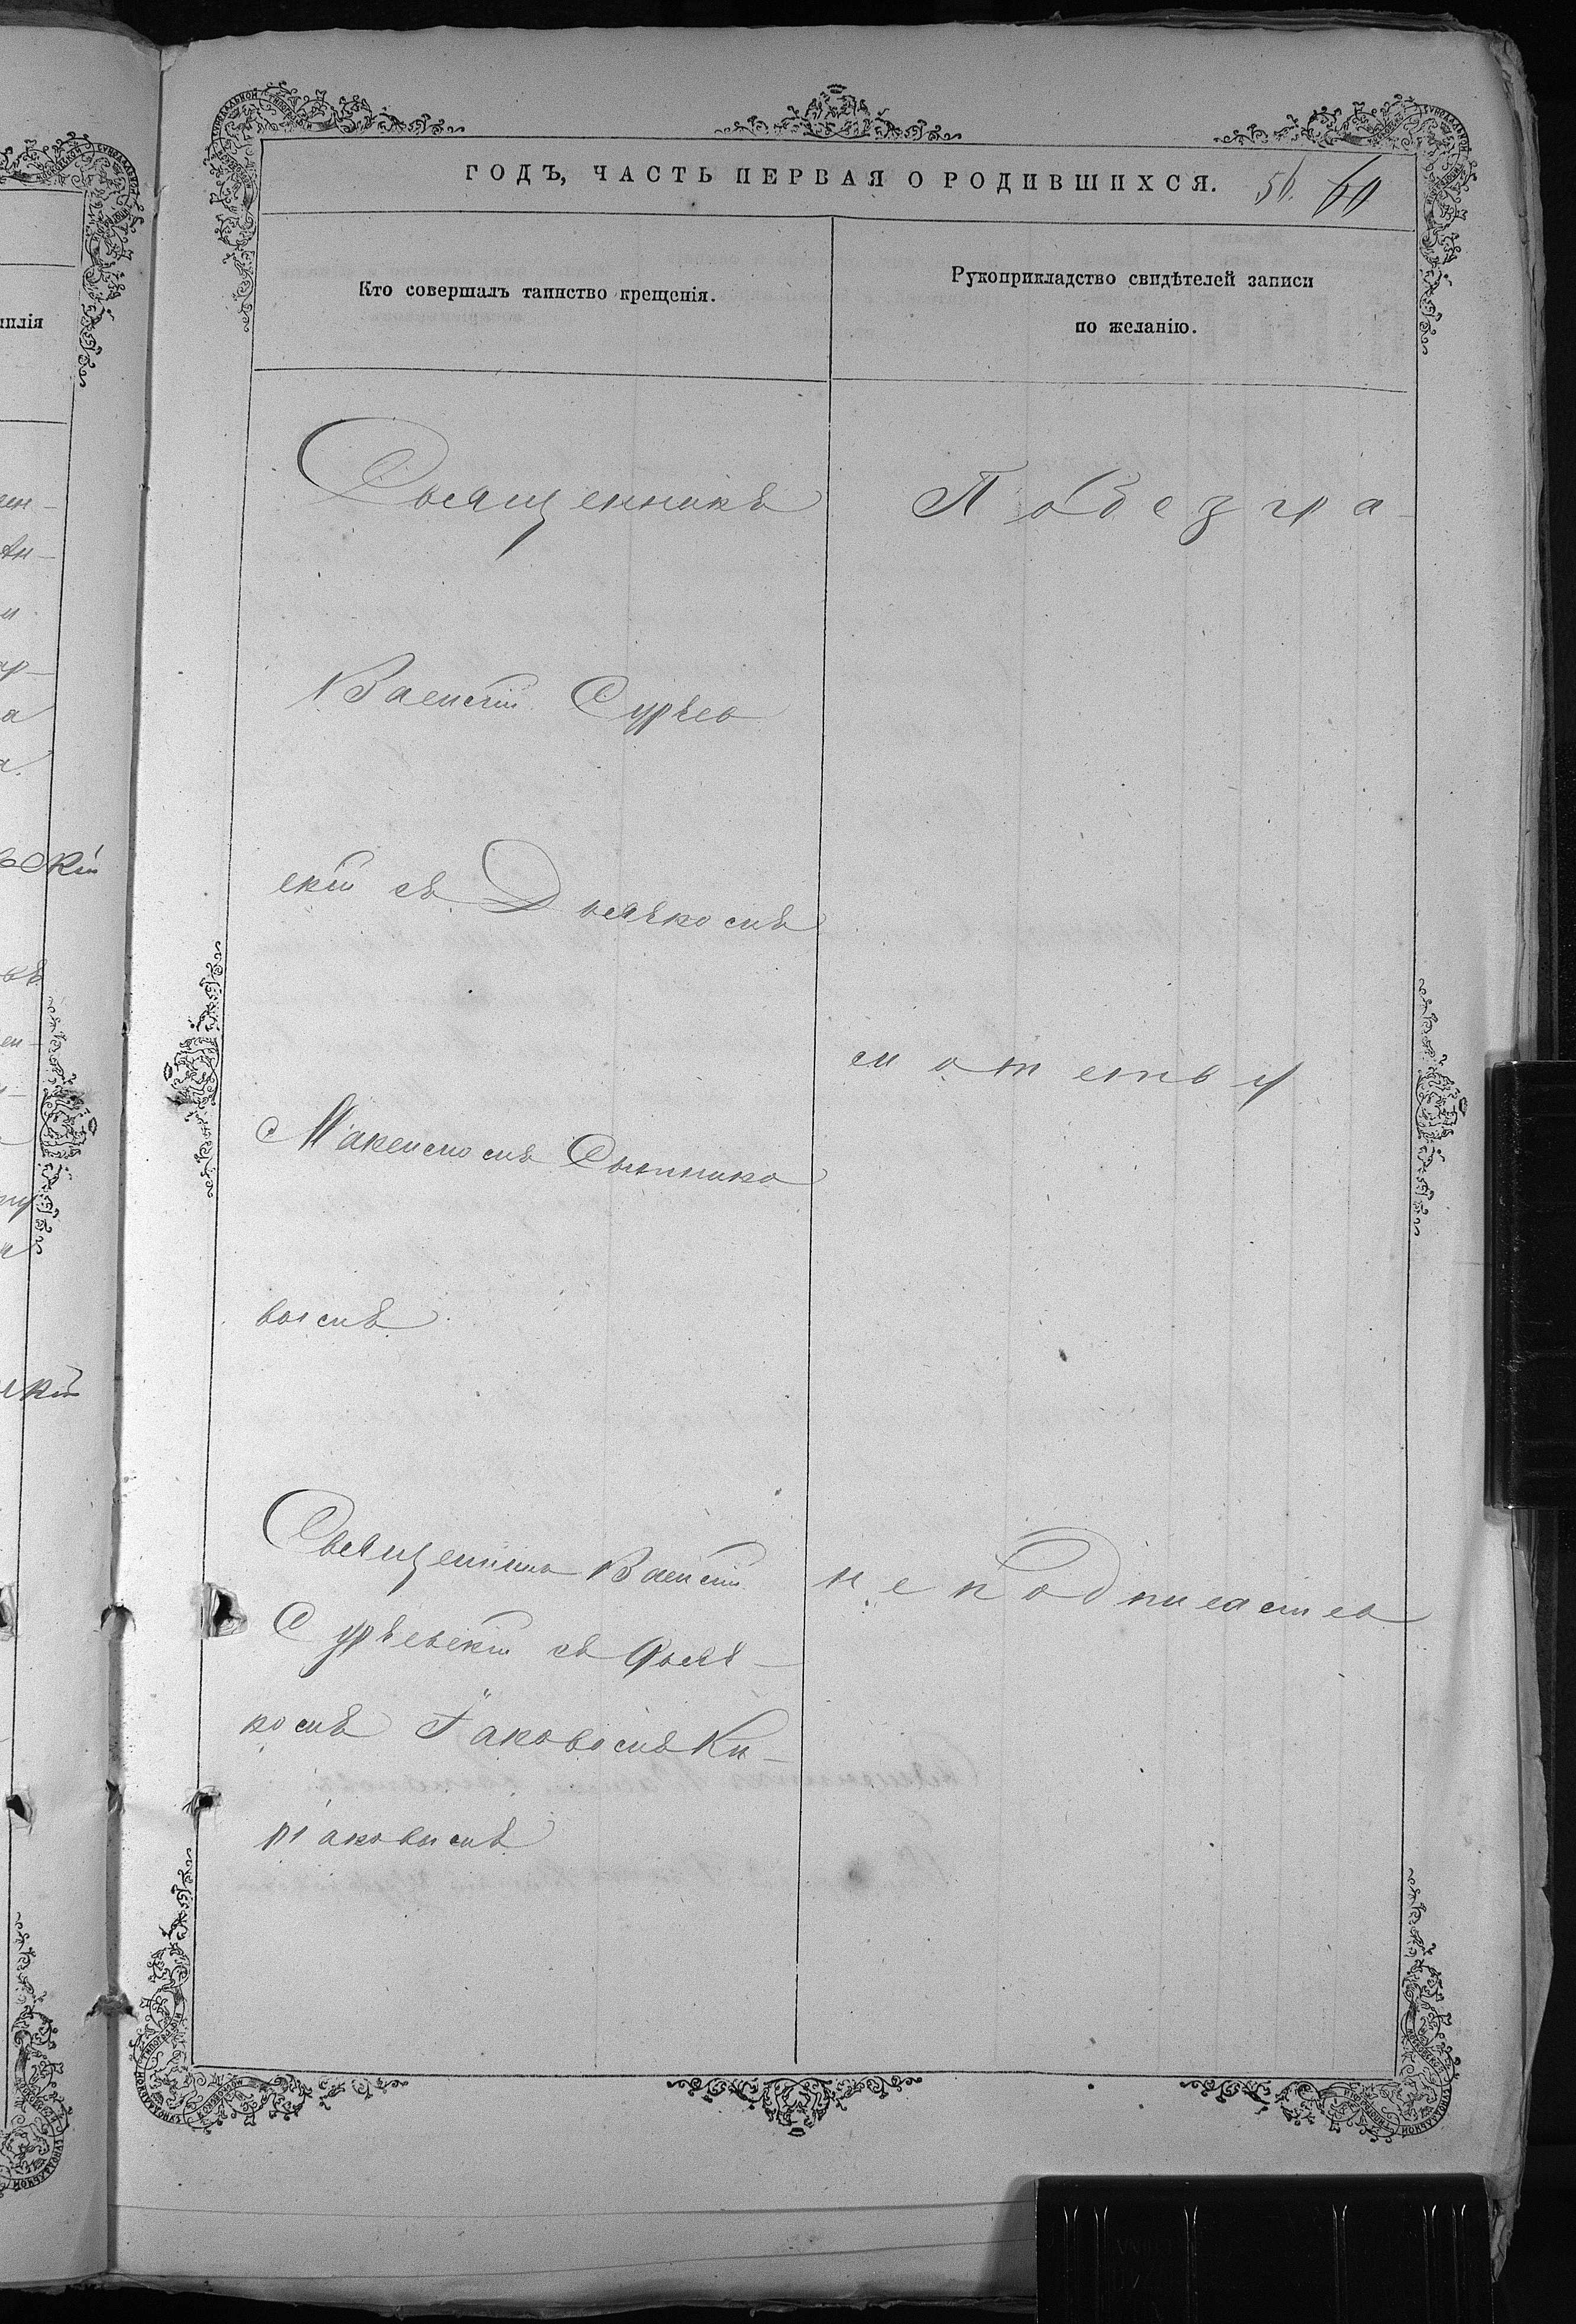 ГОДЪ, ЧАСТЬ ПЕРВАЯ О РОДИВШИХСЯ. 56. 60
Кто совершалъ таинство крещенія.
Рукоприкладство свидѣтелей записи
по желанію.
Священникъ
Василій Сурьев
скій съ Дьячкомъ
Максимомъ Сытнико
вымъ
Священникъ Василій
Сурьевскій съ Дьяч-
комъ Іаковомъ Ки-
ріаковымъ
По безгра-
мотству
не подписались